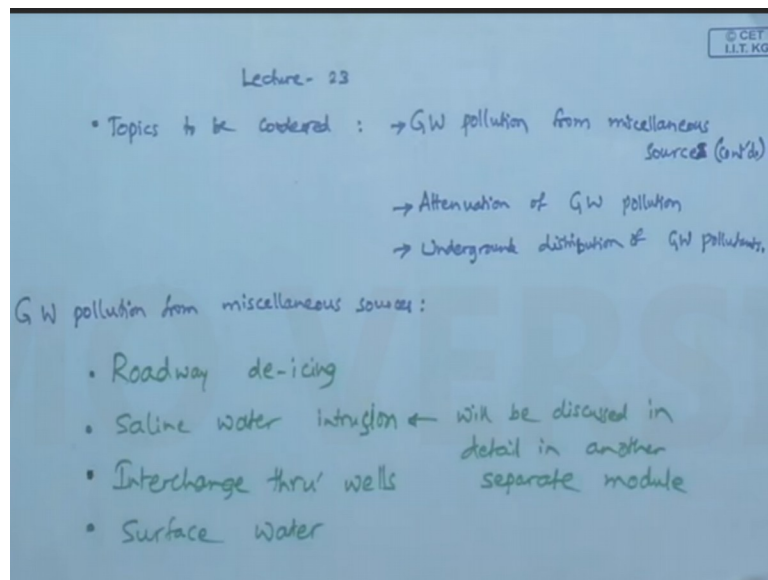 © CET
I.I.T. KG
Lecture - 23
• Topics to be covered : → GW pollution from miscellaneous
sources (cont'd.)
→ Attenuation of GW pollution
→ Underground distribution of GW pollutants.
GW pollution from miscellaneous sources :
• Roadway de-icing
• Saline water intrusion ← will be discussed in
detail in another
• Interchange thru' wells separate module
• Surface water
MO VERSI